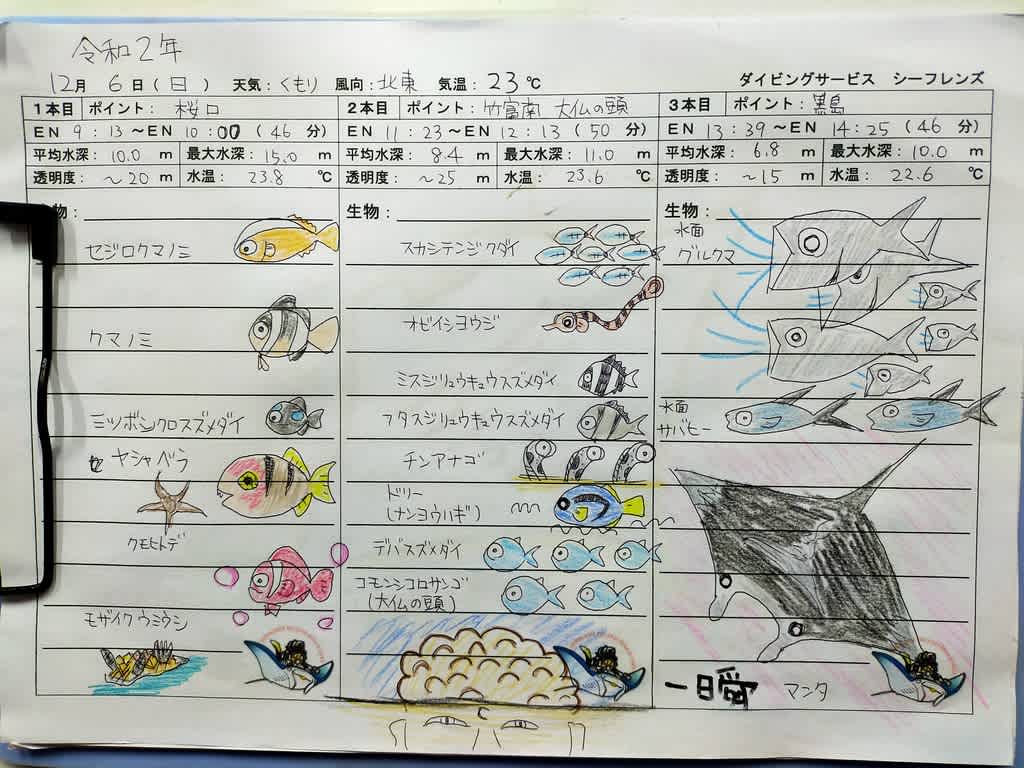 令和2年
12月 6日(日) 天気:くもり 風向:北東 気温:23℃ ダイビングサービス シーフレンズ
1本目 ポイント: 桜口
EN 9:13~EN 10:00 (46 分)
平均水深: 10.0 m 最大水深: 15.0 m
透明度: ~20 m 水温: 23.8 ℃
物:
セジロクマノミ
クマノミ
ミツボシクロスズメダイ
ヤシャベラ
クモヒトデ
モザイクウミウシ
2本目 ポイント: 竹富南 大仏の頭
EN 11:23~EN 12:13 (50 分)
平均水深: 8.4 m 最大水深: 11.0 m
透明度: ~25 m 水温: 23.6 ℃
生物:
スカシテンジクダイ
オビイシヨウジ
ミスジリュウキュウスズメダイ
フタスジリュウキュウスズメダイ
チンアナゴ
ドリー
(ナンヨウハギ)
デバスズメダイ
コモンシコロサンゴ
(大仏の頭)
3本目 ポイント: 黒島
EN 13:39~EN 14:25 (46 分)
平均水深: 6.8 m 最大水深: 10.0 m
透明度: ~15 m 水温: 22.6 ℃
生物:
水面
グルクマ
水面
サバヒー
一日瞬 マンタ